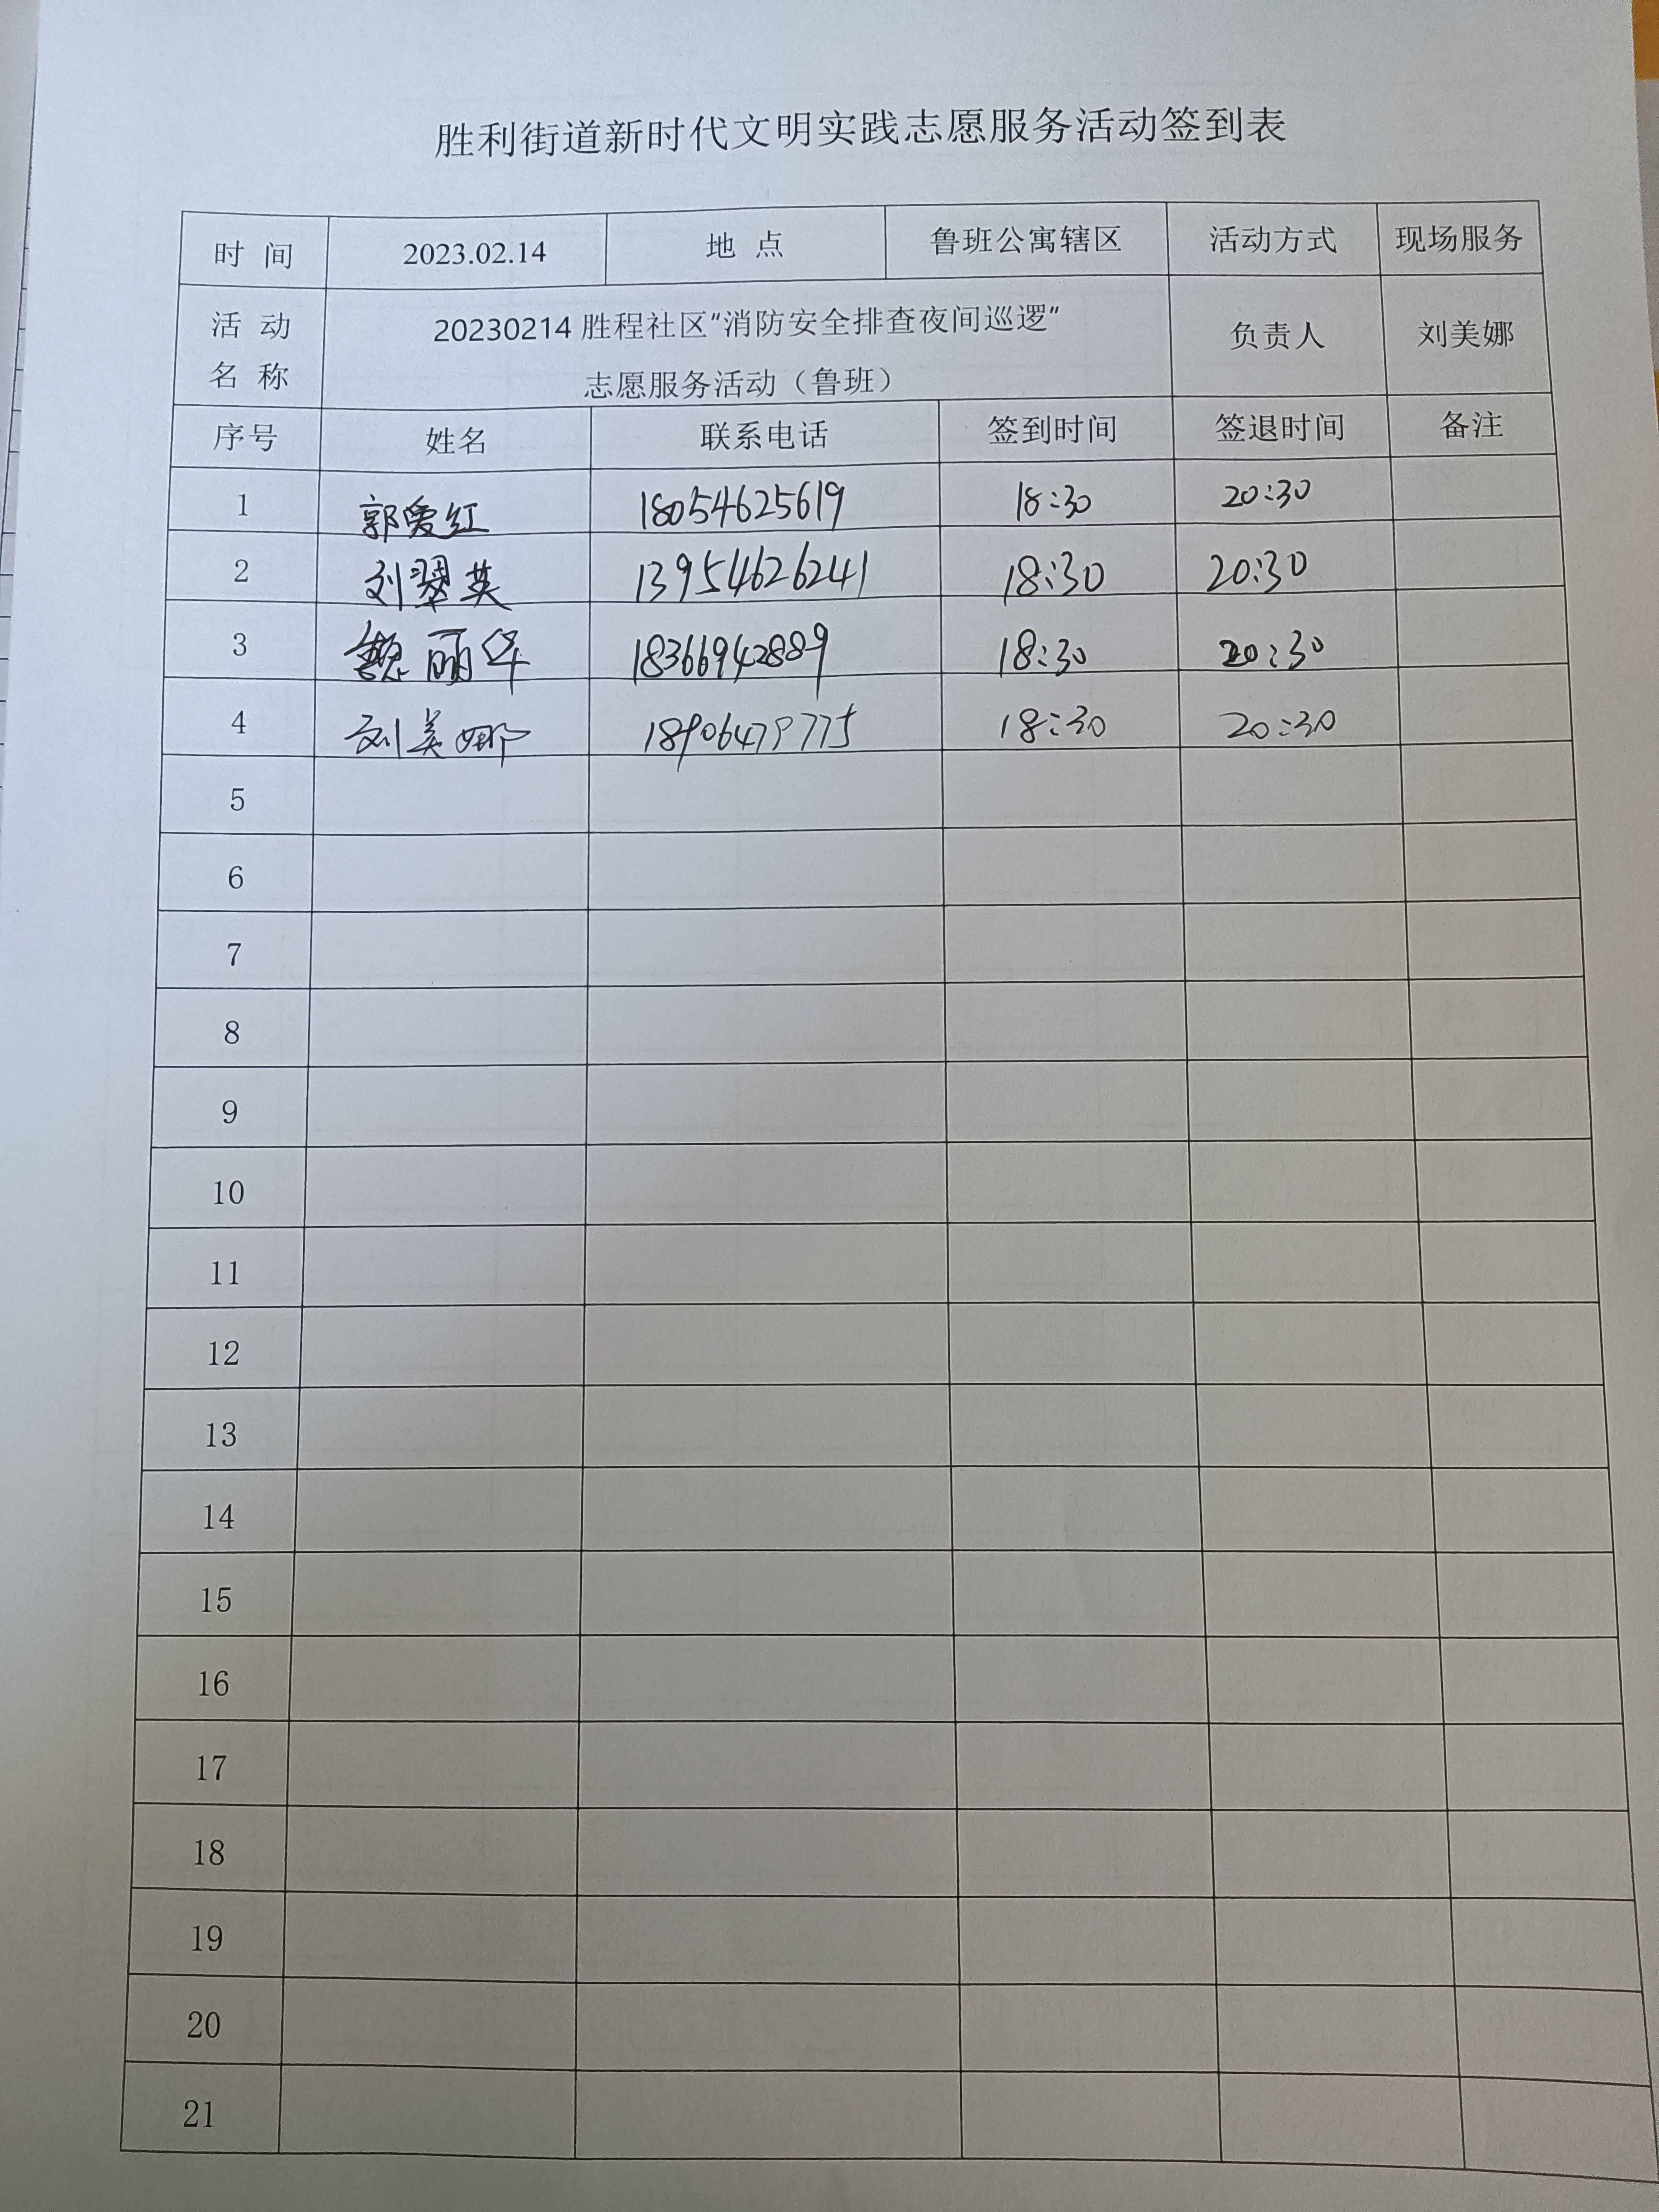 胜利街道新时代文明实践志愿服务活动签到表
时 间 2023.02.14 地 点 鲁班公寓辖区 活动方式 现场服务
活 动 名 称 20230214 胜程社区“消防安全排查夜间巡逻” 负责人 刘美娜
志愿服务活动（鲁班）
序号 姓名 联系电话 签到时间 签退时间 备注
1 郭爱红 18054625619 18:30 20:30
2 刘翠英 13954626241 18:30 20:30
3 魏丽华 18366942889 18:30 20:30
4 刘美娜 18906479775 18:30 20:30
5
6
7
8
9
10
11
12
13
14
15
16
17
18
19
20
21